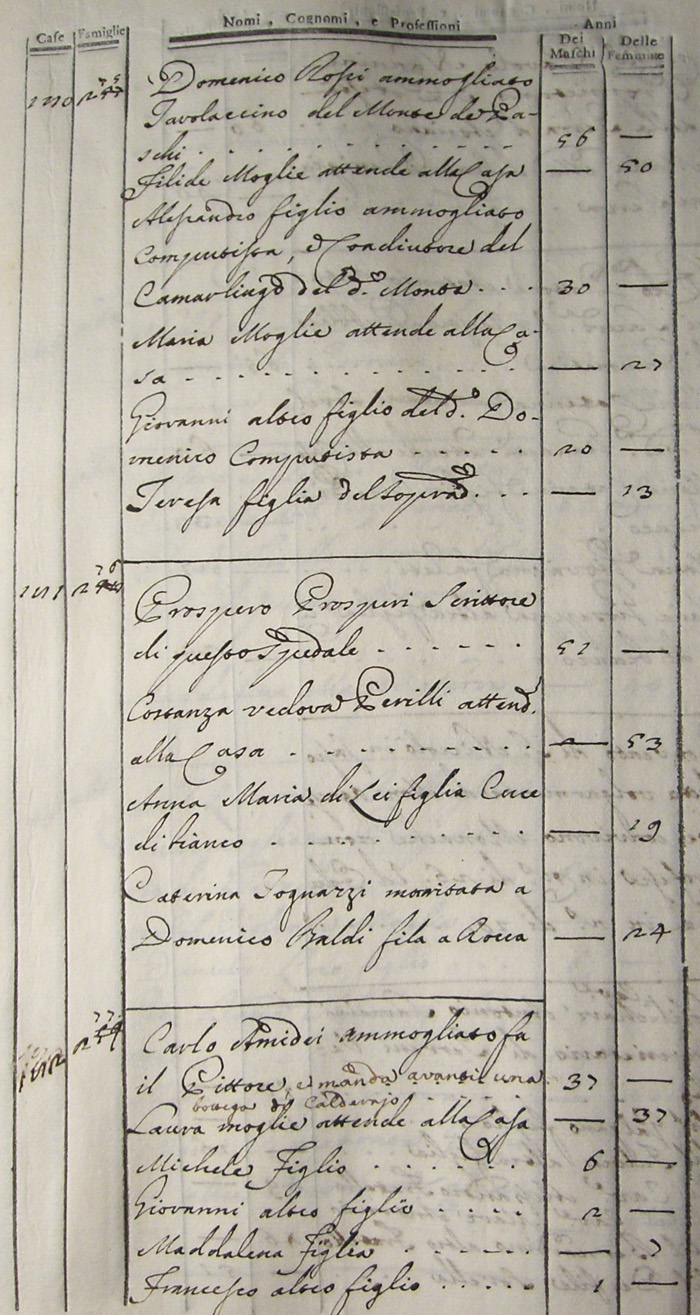 Case Famiglie Nomi, Cognomi, e Professioni Anni
Dei Maschi Delle Femmine
Domenico Rossi ammogliato
Tavolaccino del Monte de Pa-
schi . . . . . . . . . . 56 —
Filide Moglie attende alla Casa — 50
Alessandro figlio ammogliato
Computista, e Coadiutore del
Camarlingo del d.º Monte . . . 30 —
Maria Moglie attende alla Ca-
sa . . . . . . . . . . — 27
Giovanni altro figlio del d.º Do-
menico Computista . . . . . 20 —
Teresa figlia del soprad. . . — 13
Prospero Prosperi Scrittore
di questo Spedale . . . . . . 51 —
Costanza vedova Perilli attend.
alla Casa . . . . . . . . . — 53
Anna Maria di Lei figlia Cuce
di bianco . . . . . . . . — 19
Caterina Tognazzi maritata a
Domenico Baldi fila a Rocca — 24
Carlo Amidei ammogliato fa
il Pittore, e manda avanti una 37 —
bottega di Calderajo
Laura moglie attende alla Casa — 37
Michele Figlio . . . . . . 6 —
Giovanni altro figlio . . . . 2 —
Maddalena Figlia . . . . . — 7
Francesco altro figlio . . . . . 1 —